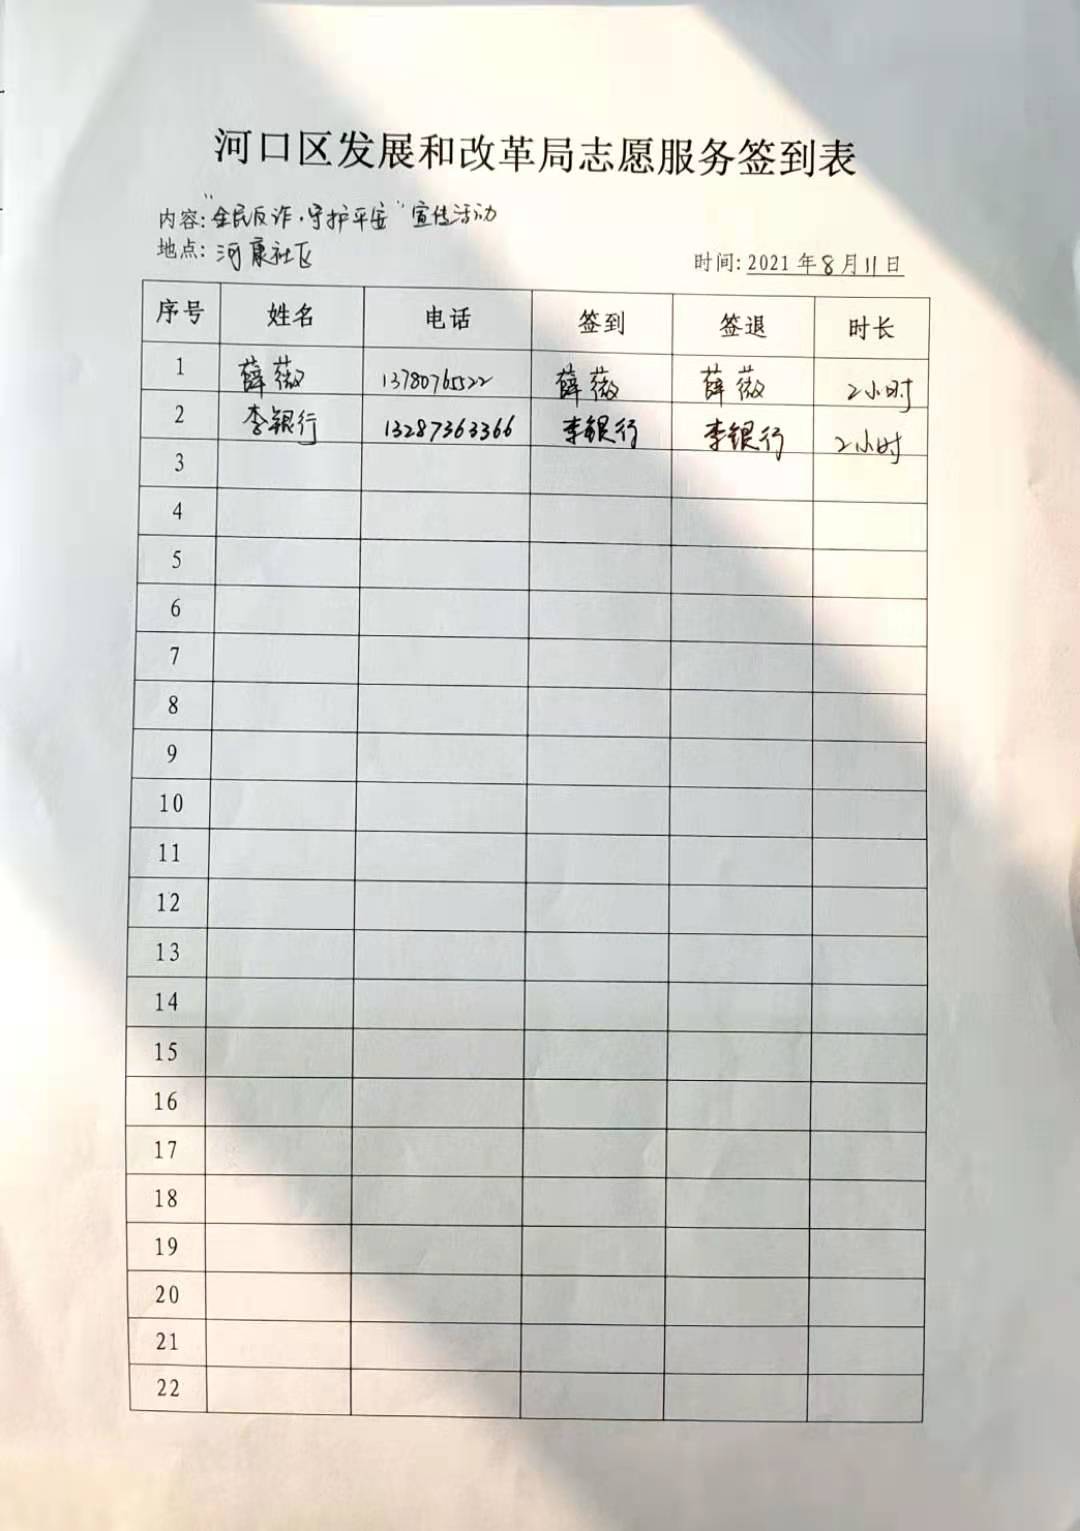 河口区发展和改革局志愿服务签到表
内容:"全民反诈·守护平安"宣传活动
地点:河康社区
时间:2021年8月11日
序号 姓名 电话 签到 签退 时长
1 薛薇 13780765522 薛薇 薛薇 2小时
2 李银行 13287363366 李银行 李银行 2小时
3
4
5
6
7
8
9
10
11
12
13
14
15
16
17
18
19
20
21
22